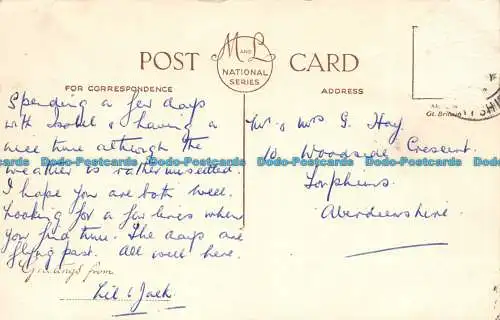 POST CARD
M AND L
NATIONAL
SERIES
FOR CORRESPONDENCE
ADDRESS
Gt. Britain
Spending a few days
with Isobel & having a
nice time although the
weather is rather unsettled.
I hope you are both well.
Looking for a few lines when
you find time. The days are
flying past. All well here.
Greetings from
Lil & Jack.
Mr & Mrs G. Hay,
10 Woodside Crescent
Torphins
Aberdeenshire
Dodo-Postcards Dodo-Postcards Dodo-Postcards Dodo-Postcards Dodo-Postcards